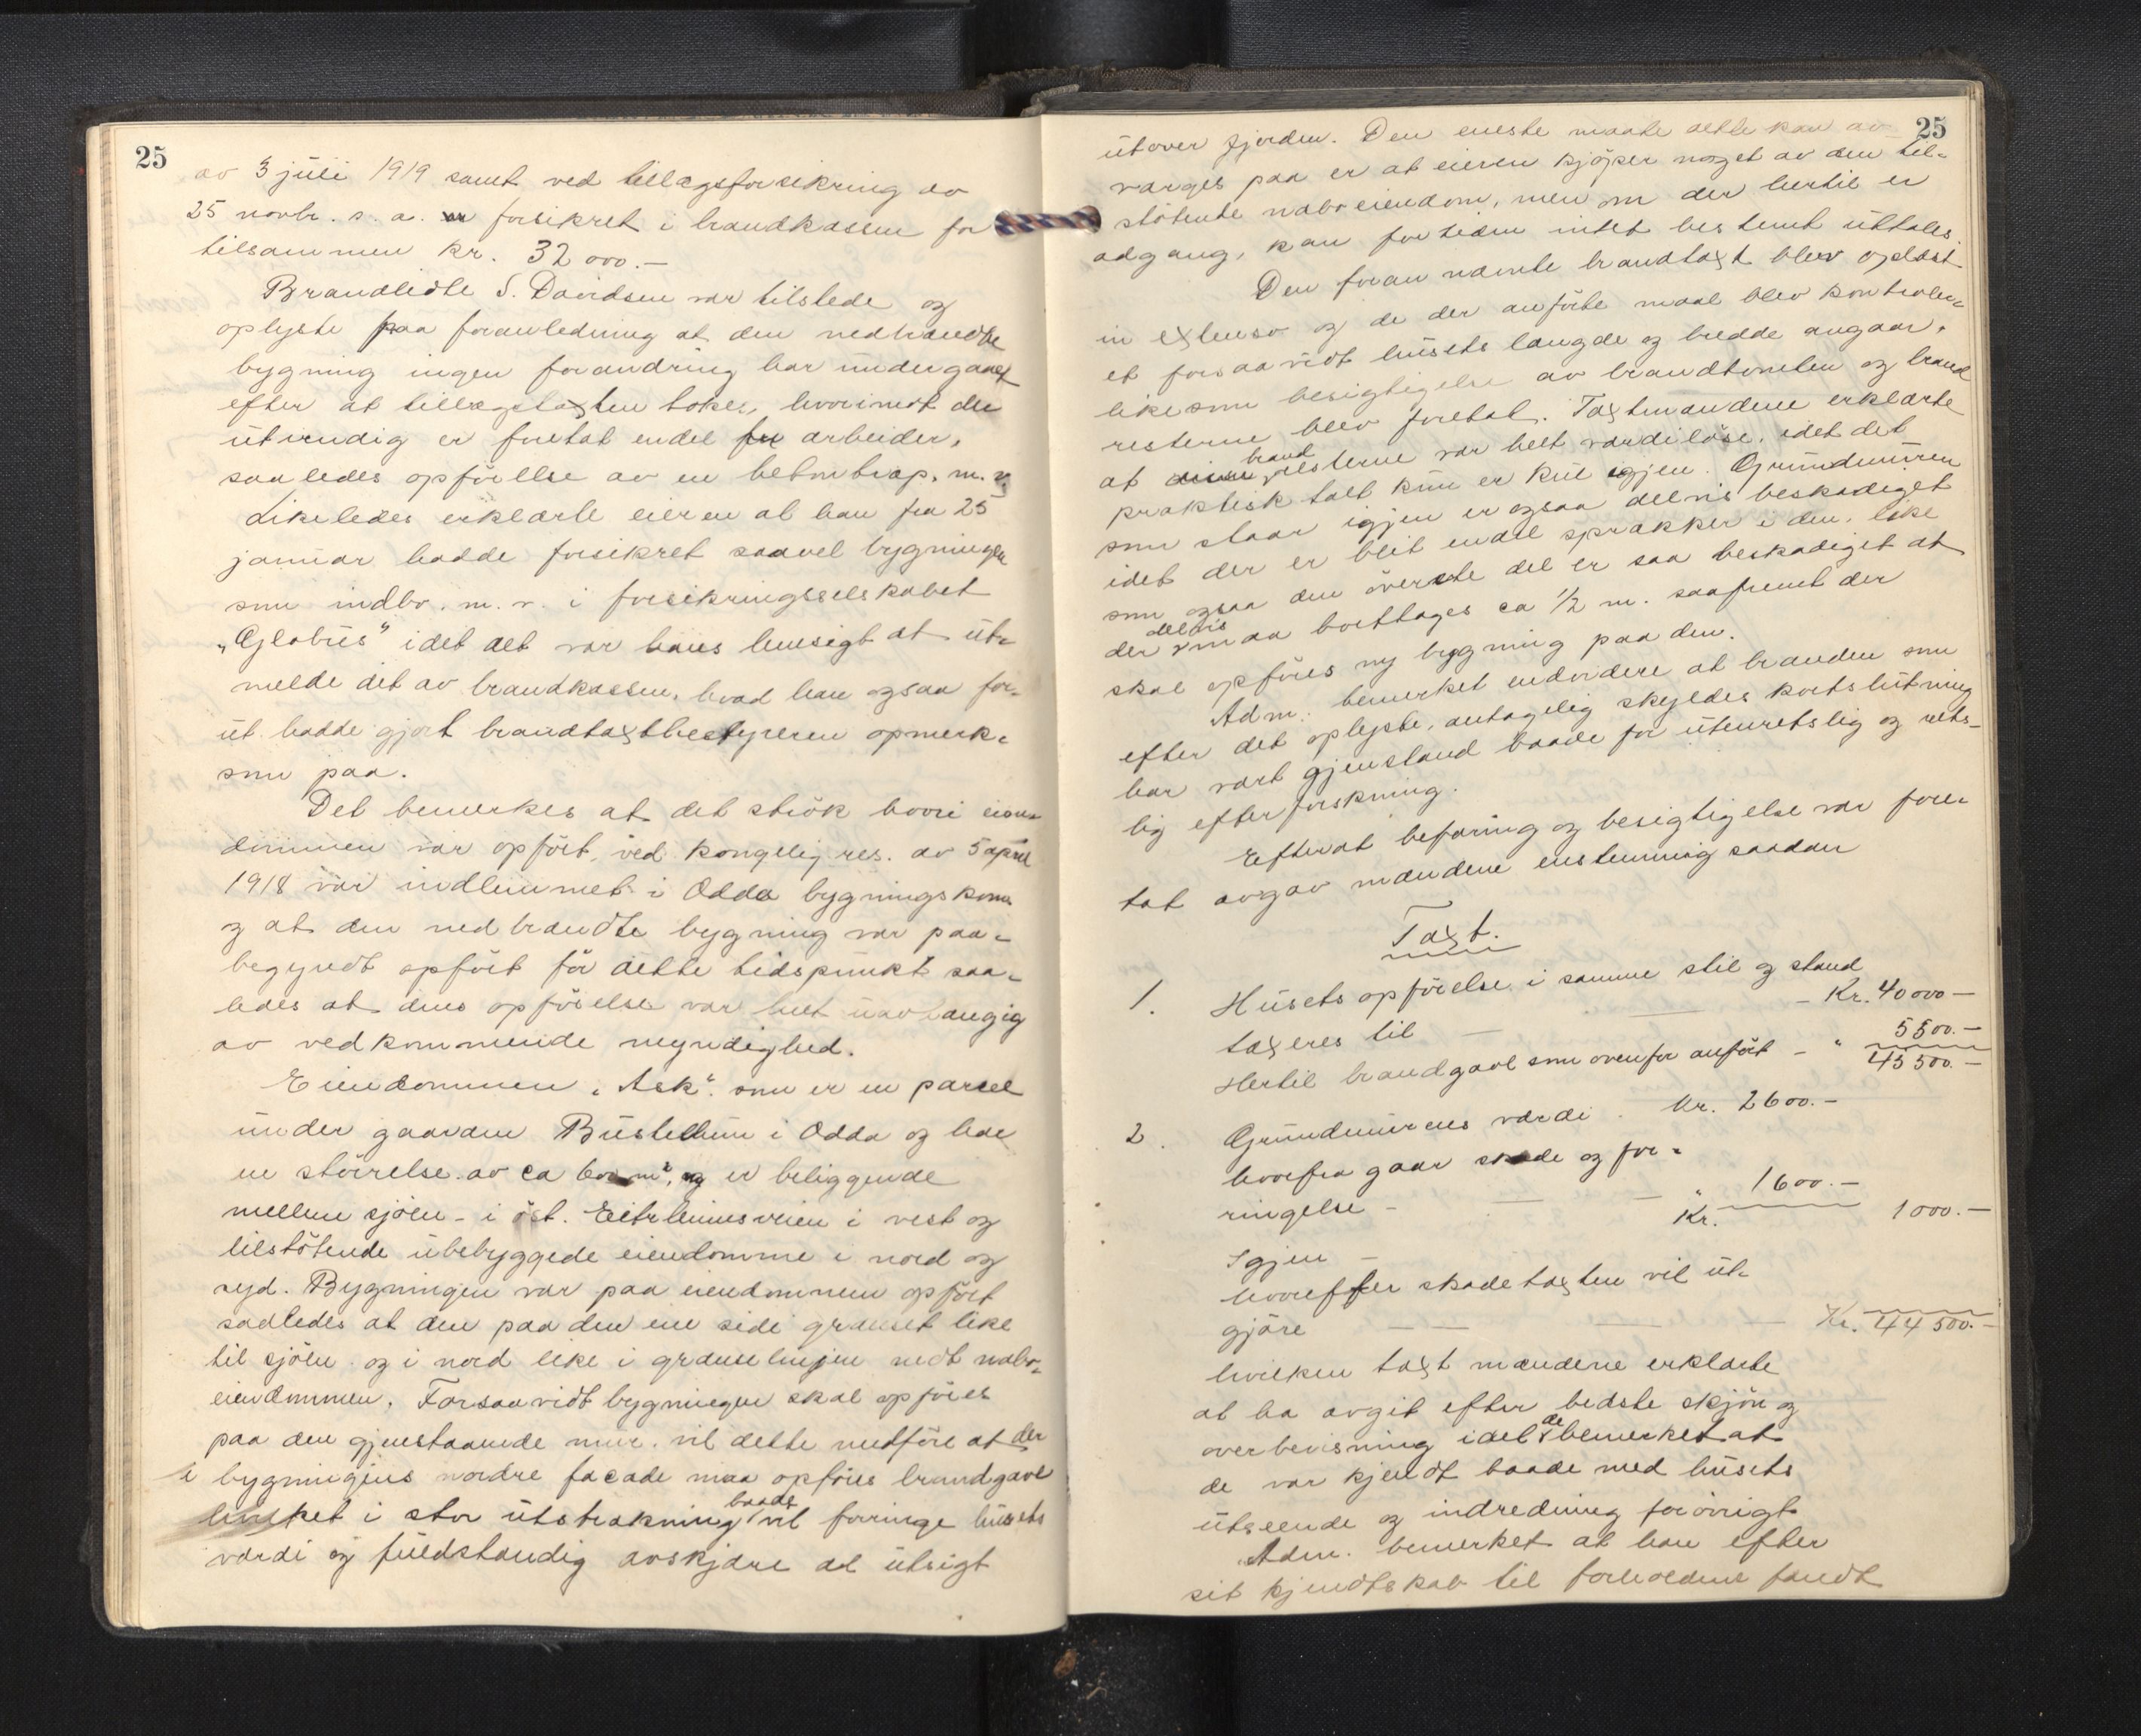 25
av 3 juli 1919 samt ved tillægsforsikring av
25 novbr. s. a. er forsikret i brandkassen for
tilsammen kr. 32 000.—
Brandlidte S. Davidsen var tilstede og
oplyste paa foranledning at den nedbrændte
bygning ingen forandring har undergaaet
efter at tillægstaxten tokes, hvorimot der
utvendig er foretat endel arbeider,
saaledes opförelse av en betontrap, m. v.
Likeledes erklærte eieren at han fra 25
januar hadde forsikret saavel bygningen
som indbo. m. v. i forsikringsselskabet
„Globus" idet det var hans hensigt at ut-
melde det av brandkassen, hvad han ogsaa for-
ut hadde gjort brandtaxtbestyreren opmerk-
som paa.
Det bemerkes at det strök hvori eien-
dommen var opfört, ved kongelig res. av 5 april
1918 var indlemmet i Odda bygningskom.
og at den nedbrændte bygning var paa-
begyndt opfört för dette tidspunkt saa-
ledes at dens opförelse var helt uavhængig
av vedkommende myndighed.
Eiendommen „Ask". som er en parcel
under gaarden Bustetun i Odda og har
en störrelse av ca 600 m², og er beliggende
mellem sjöen - i öst. Eitrheimsveien i vest og
tilstötende ubebyggede eiendomme i nord og
syd. Bygningen var paa eiendommen opfört
saaledes at den paa den ene side grænset like
til sjöen og i nord like i grænselinjen medt nabo-
eiendommen. Forsaavidt bygningen skal opföres
paa den gjenstaaende mur. vil dette medföre at der
i bygningens nordre facade maa opföres brandgavl
hvilket i stor utstrækning baade vil forringe husets
værdi og fuldstændig avskjære al utsigt
25
utover fjorden. Den eneste maate dette kan av-
værges paa er at eieren kjöper noget av den til-
stötente naboeiendom, men om der hertil er
adgang, kan fortiden intet bestemt uttales.
Den foran nævnte brandtaxt blev oplæst
in extenso og de der anförte maal blev kontroler-
et forsaavidt husets længde og bredde angaar,
likesom besigtigelse av brandtomten og brand
resterne blev foretat. Taxtmændene erklærte
at brand resterne var helt værdilöse, idet det
praktisk talt kun er kul igjen. Grundmuren
som staar igjen er ogsaa delvis beskadiget
idet der er blit endel sprækker i den, like
som ogsaa den överste del er saa beskadiget at
der delvis maa borttages ca ½ m. saafremt der
skal opföres ny bygning paa den.
Adm. bemerket endvidere at branden som
efter det oplyste, antagelig skyldes kortslutning
har vært gjenstand baade for utenretslig og rets-
lig efterforskning.
Efterat befaring og besigtigelse var fore-
tat avgav mændene enstemmig saadan
Taxt.
1. Husets opförelse i samme stil og stand
taxeres til — — — Kr. 40 000 —
Hertil brandgavl som ovenfor anfört — " 5500.—
45 500.—
2. Grundmurens værdi . Kr. 2600.—
hvorfra gaar skade og for-
ringelse — — — " 1600.—
Igjen — Kr. 1000.—
hvorefter skadetaxten vil ut-
gjöre — — — — Kr. 44 500.—
hvilken taxt mændene erklærte
at ha avgit efter bedste skjön og
overbevisning idet de bemerket at
de var kjendt baade med husets
utseende og indredning forövrigt
Adm. bemerket at han efter
sit kjendtskab til forholdene fandt